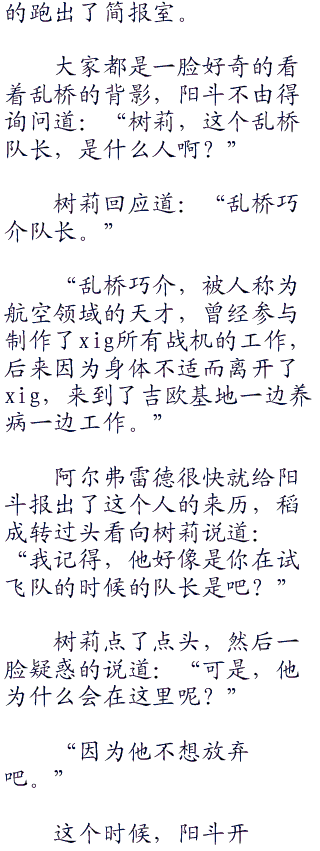 的跑出了简报室。
大家都是一脸好奇的看
着乱桥的背影，阳斗不由得
询问道：“树莉，这个乱桥
队长，是什么人啊？”
树莉回应道：“乱桥巧
介队长。”
“乱桥巧介，被人称为
航空领域的天才，曾经参与
制作了xig所有战机的工作，
后来因为身体不适而离开了
xig，来到了吉欧基地一边养
病一边工作。”
阿尔弗雷德很快就给阳
斗报出了这个人的来历，稻
成转过头看向树莉说道：
“我记得，他好像是你在试
飞队的时候的队长是吧？”
树莉点了点头，然后一
脸疑惑的说道：“可是，他
为什么会在这里呢？”
“因为他不想放弃
吧。”
这个时候，阳斗开